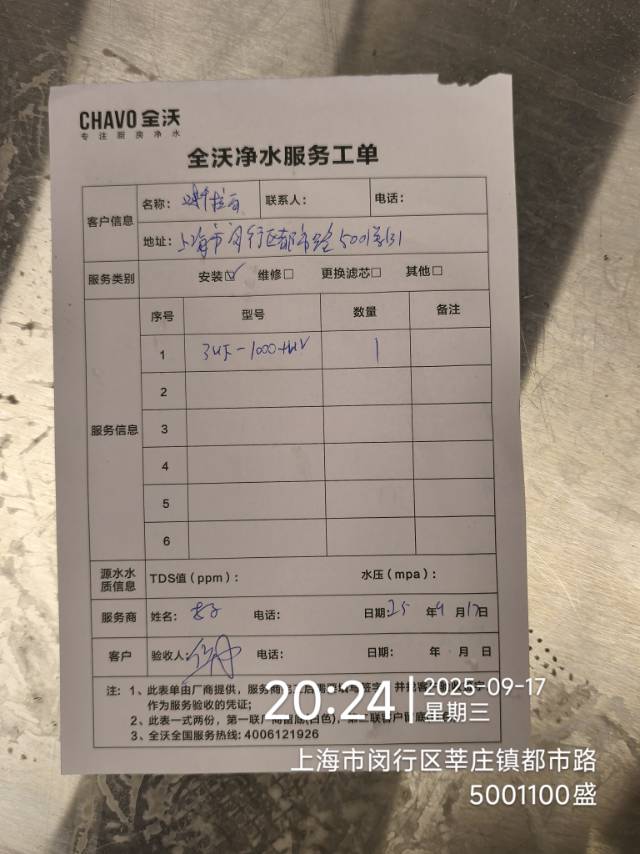 CHAVO 全沃
专注厨房净水
全沃净水服务工单
客户信息
名称:
联系人:
电话:
地址: 上海市闵行区都市路5001号131
服务类别
安装☑ 维修□ 更换滤芯□ 其他□
服务信息
序号 型号 数量 备注
1 1
2
3
4
5
6
源水水质信息
TDS值(ppm): 水压(mpa):
服务商 姓名: 电话: 日期:25 年9月17日
客户 验收人: 电话: 日期: 年 月 日
注: 1、此表单由厂商提供,服务商
作为服务验收的凭证;
2、此表一式两份,第一联
3、全沃全国服务热线: 4006121926
20:24
2025-09-17
星期三
上海市闵行区莘庄镇都市路
5001100盛